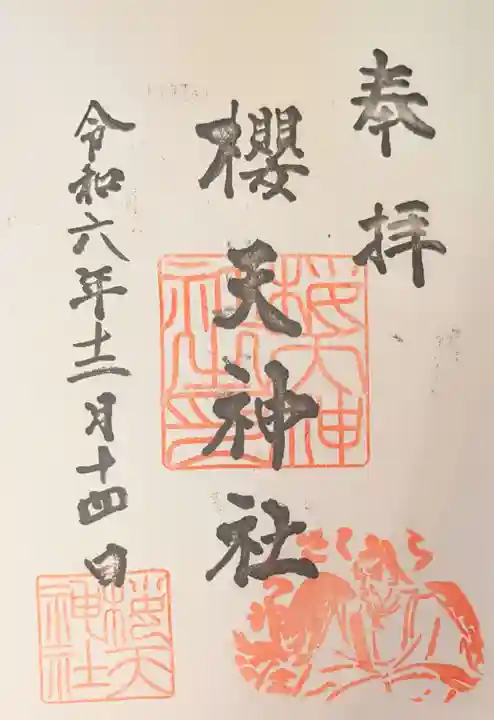 奉拝
櫻天神社
令和六年十二月十四日
櫻天神社印
櫻天神社